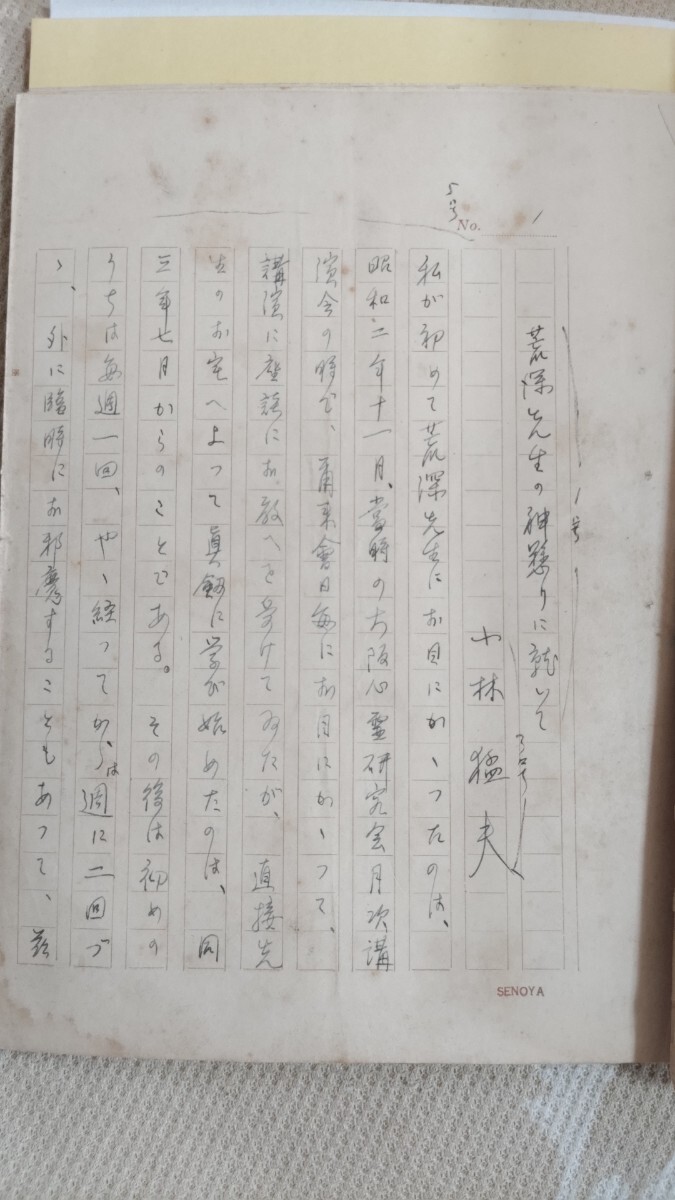 No. 1
5号
1号
荒深先生の神懸りに就いて
小林猛夫
私が初めて荒深先生にお目にかゝつたのは、
昭和二年十一月、當時の大阪心霊研究会月次講
演会の時で、爾来會日毎にお目にかゝつて、
講演に座談にお教へを受けてゐたが、直接先
生のお宅へよつて眞剱に学び始めたのは、同
三年七月からのことである。その後は初めの
うちは毎週一回、やゝ経つてからは週に二回づ
ゝ、外に臨時にお邪魔することもあつて、
SENOYA